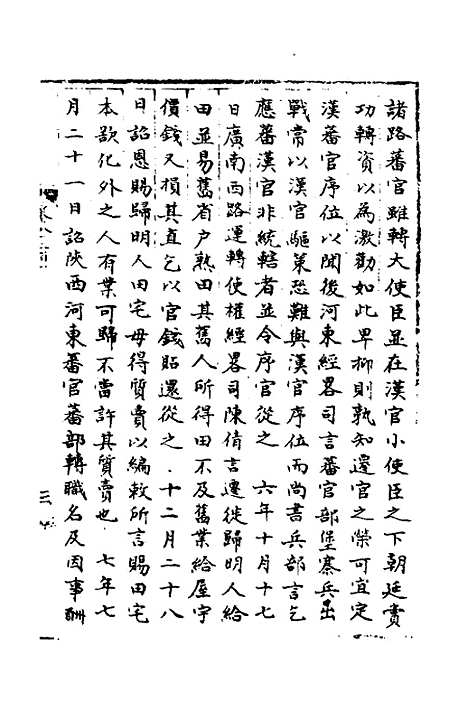 諸路蕃官雖轉大使臣並在漢官小使臣之下朝廷賞
功轉資以為激勸如此卑抑則孰知遷官之榮可宜定
漢蕃官序位以聞後河東經畧司言蕃官部堡寨兵出
戰常以漢官驅策恐難與漢官序位而尚書兵部言乞
應蕃漢官非統轄者並令序官從之 六年十月十七
日廣南西路運轉使權經畧司陳倩言遷徙歸明人給
田並易舊省户熟田其舊人所得田不及舊業給屋宇
價錢又損其直乞以官錢貼還從之 十二月二十八
日詔恩賜歸明人田宅毋得質賣以編敕所言賜田宅
本欲化外之人有業可歸不當許其質賣也 七年七
月二十一日詔陝西河東蕃官蕃部轉職名及因事酬
三